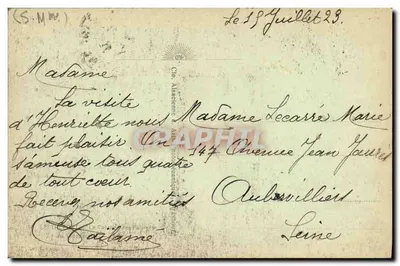 (S.-M.)
Le 15 Juillet 23.
Madame
La visite
d'Henriette nous
fait plaisir On
s'amuse tous quatre
de tout coeur
Recevez nos amitiés
Madame Lecarré Marie
147 Avenue Jean Jaurès
Aubervilliers
Seine
CARTORUM